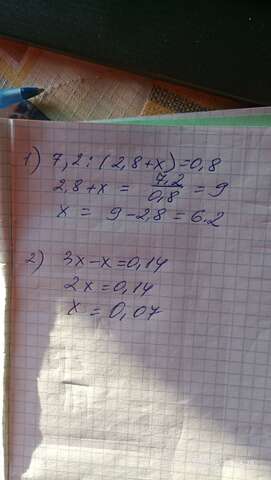 1) 7,2:(2,8+x)=0,8
2,8+x = 7,2/0,8 = 9
x = 9-2,8 = 6.2
2) 3x-x=0,14
2x=0,14
x = 0,07